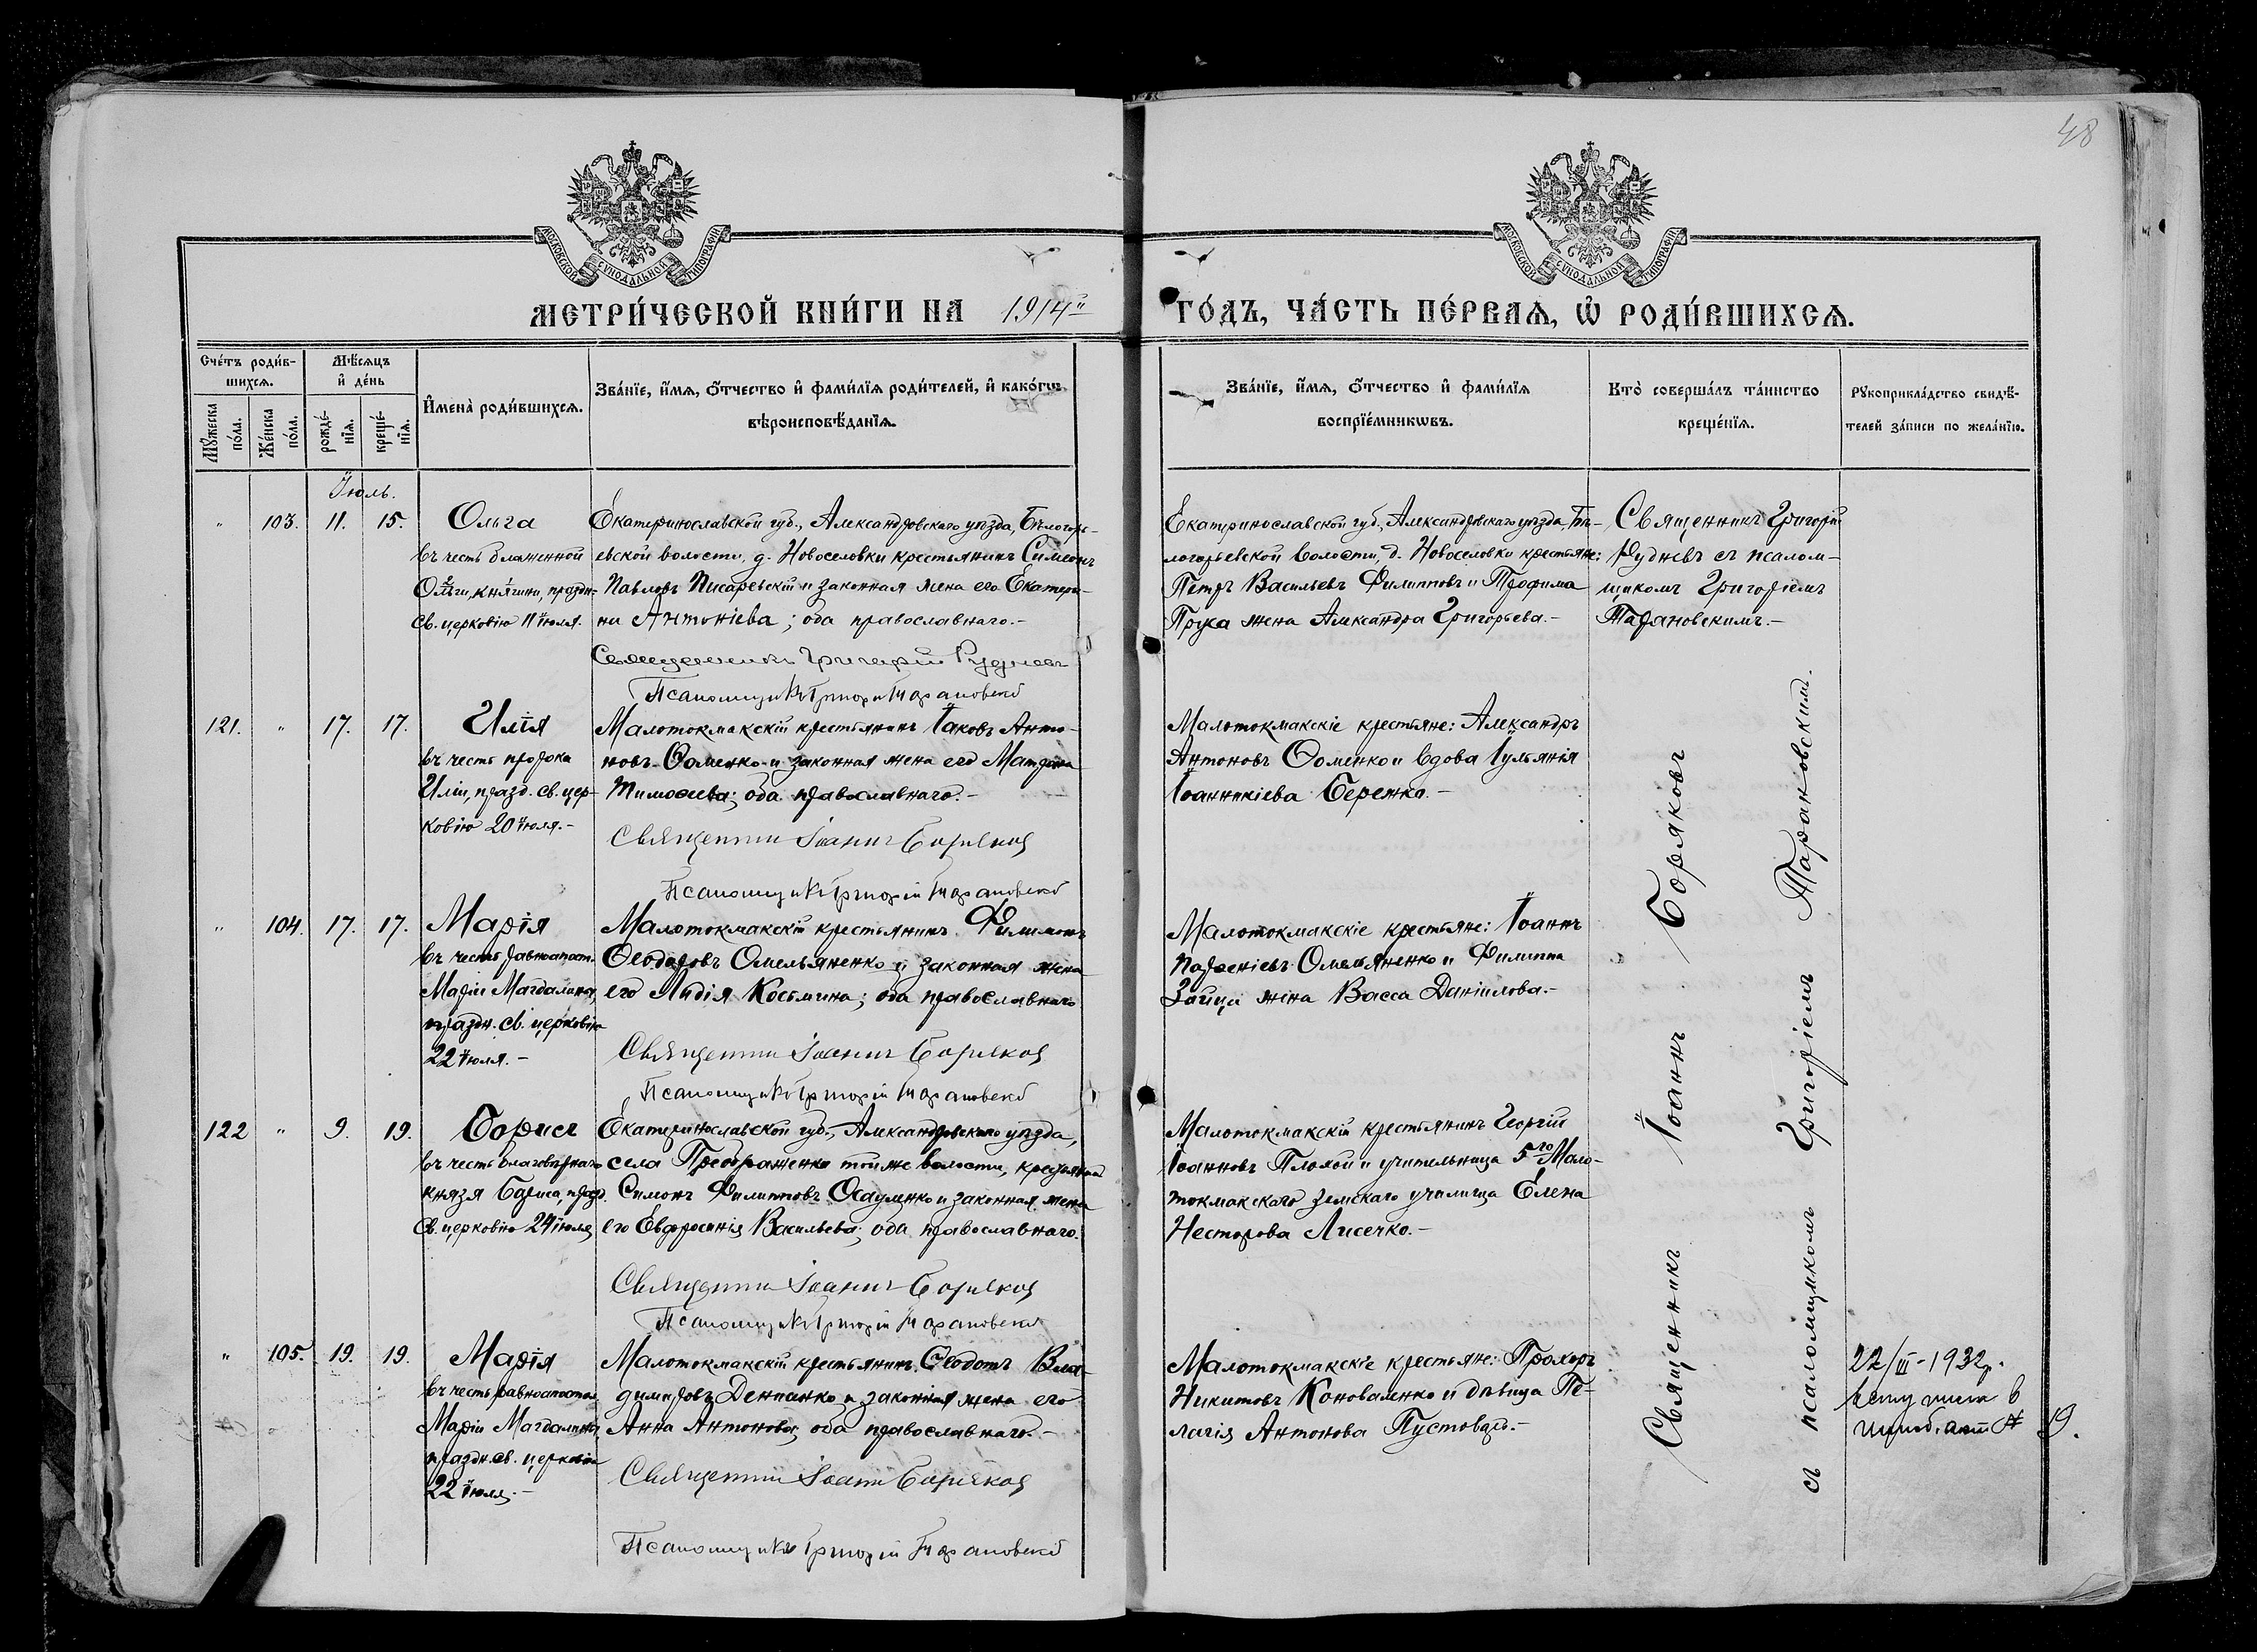 48
МОСКОВСКОЙ СѴНОДАЛЬНОЙ ТИПОГРАФІИ
МОСКОВСКОЙ СѴНОДАЛЬНОЙ ТИПОГРАФІИ
МЕТРИ́ЧЕСКОЙ КНИ́ГИ НА 1914й ГО́ДЪ, ЧА́СТЬ ПЕ́РВАѦ, Ѡ҆ РОДИ́ВШИХСѦ.
Сче́тъ роди́в-
шихсѧ.
Мꙋ́жеска
по́ла.
Же́нска
по́ла.
Мѣ́сѧцъ
и҆ де́нь
рожде́-
нїѧ.
креще́-
нїѧ.
И҆мена̀ роди́вшихсѧ.
Зва́нїе, и҆́мѧ, ѻ҆́тчество и҆ фами́лїѧ роди́телей, и҆ како́гѡ
вѣроисповѣ́данїѧ.
Зва́нїе, и҆́мѧ, ѻ҆́тчество и҆ фами́лїѧ
воспрїе́мникѡвъ.
Кто̀ соверша́лъ та́инство
креще́нїѧ.
Рꙋкоприкла́дство свидѣ́-
телей за́писи по жела́нїю.
Іюль.
" 103. 11. 15.
Ольга
въ честь блаженной
Ольги, княгини, праздн.
св. церковію 11 іюля.
Екатеринославской губ., Александровскаго уѣзда, Бѣлогорь-
евской волости, д. Новоселовки крестьянинъ Симеонъ
Павловъ Писаревскій и законная жена его Екатери-
на Антоніева; оба православнаго.-
Священникъ Григорій Рудневъ
Псаломщикъ Григорій Тарановскій
Екатеринославской губ., Александровскаго уѣзда, Бѣ-
логорьевской волости, д. Новоселовки крестьяне:
Петръ Васильевъ Филипповъ и Трофима
Пруса жена Александра Григорьева.-
Священникъ Григорій
Рудневъ съ псалом-
щикомъ Григоріемъ
Тарановскимъ.-
121. " 17. 17.
Илія
въ честь пророка
Иліи, празд. св. цер-
ковію 20 іюля.-
Малотокмакскій крестьянинъ Іаковъ Анто-
новъ Ѳоменко и законная жена его Матрона
Тимоѳеева; оба православнаго.-
Священникъ Іоаннъ Боряковъ
Псаломщикъ Григорій Тарановскій
Малотокмакскіе крестьяне: Александръ
Антоновъ Ѳоменко и вдова Іульянія
Іоанникіева Бережко.-
" 104. 17. 17.
Марія
въ честь равноапост.
Маріи Магдалины,
праздн. св. церковію
22 іюля.-
Малотокмакскій крестьянинъ Филимонъ
Ѳеодоровъ Омельяненко и законная жена
его Лидія Косьмина; оба православнаго
Священникъ Іоаннъ Боряковъ
Псаломщикъ Григорій Тарановскій
Малотокмакскіе крестьяне: Іоаннъ
Парѳеніевъ Омельяненко и Филиппа
Зайца жена Васса Даніилова.-
122 " 9. 19.
Борисъ
въ честь благовѣрнаго
князя Бориса, празд.
св. церковію 24 іюля
Екатеринославской губ., Александровскаго уѣзда,
села Преображенка тойже волости, крестьянинъ
Симонъ Филипповъ Осауленко и законная жена
его Евфросинія Васильева; оба православнаго.
Священникъ Іоаннъ Боряковъ
Псаломщикъ Григорій Тарановскій
Малотокмакскій крестьянинъ Георгій
Іоанновъ Плохой и учительница 5го Мало-
токмакскаго земскаго училища Елена
Несторова Лисечко.-
" 105. 19. 19.
Марія
въ честь равноапостол.
Маріи Магдалины
праздн. св. церковію
22 іюля.-
Малотокмакскій крестьянинъ Ѳеодотъ Вла-
димировъ Денпанко и законная жена его
Анна Антонова; оба православнаго.-
Священникъ Іоаннъ Боряковъ
Псаломщикъ Григорій Тарановскій
Малотокмакскіе крестьяне: Прохоръ
Никитовъ Коноваленко и дѣвица Пе-
лагія Антонова Пустоваръ.-
Священникъ Іоаннъ Боряковъ
съ псаломщикомъ Григоріемъ Тарановскимъ.
22/III-1932р.
в
акт № 19.